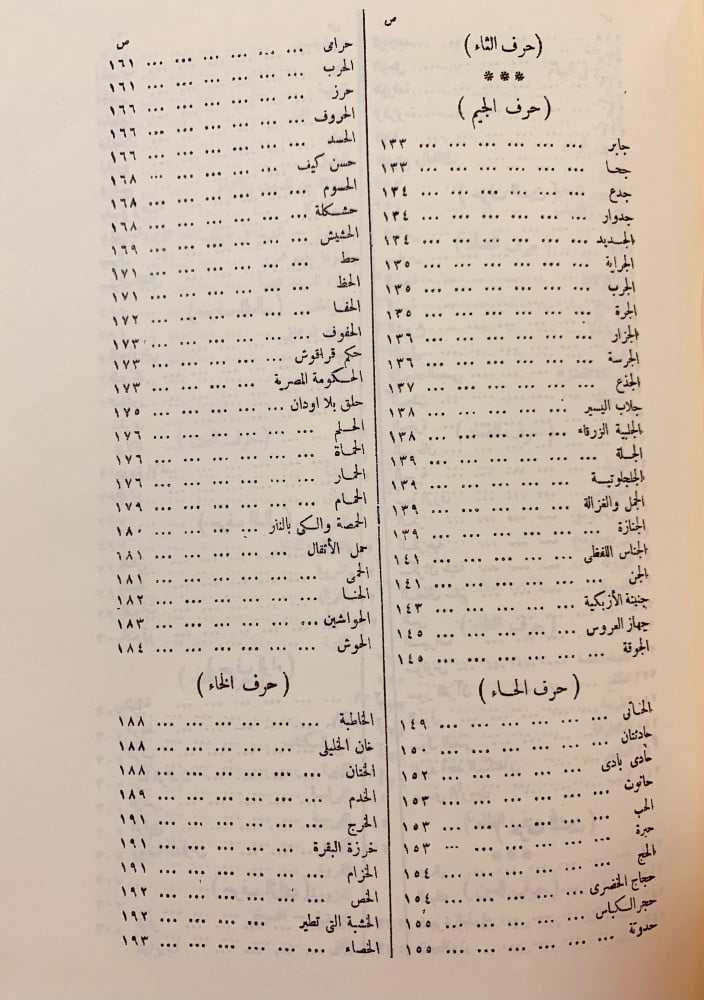 ص
(حرف الثاء)
***
(حرف الجيم)
جابر ... ... ... ... ... ... ١٣٣
جحا ... ... ... ... ... ... ١٣٣
جدع ... ... ... ... ... ... ١٣٤
جدوار ... ... ... ... ... ... ١٣٤
الجديد ... ... ... ... ... ... ١٣٤
الجراية ... ... ... ... ... ... ١٣٥
الجرب ... ... ... ... ... ... ١٣٥
الجرة ... ... ... ... ... ... ١٣٥
الجزار ... ... ... ... ... ... ١٣٦
الجرسة ... ... ... ... ... ... ١٣٦
الجذع ... ... ... ... ... ... ١٣٧
جلاب اليسير ... ... ... ... ... ١٣٨
الجلبية الزرقاء ... ... ... ... ... ١٣٨
الجلة ... ... ... ... ... ... ١٣٩
الجلجلوتية ... ... ... ... ... ... ١٣٩
الجمل والغزالة ... ... ... ... ... ١٣٩
الجنازة ... ... ... ... ... ... ١٣٩
الجناس اللفظى ... ... ... ... ... ١٤١
الجن ... ... ... ... ... ... ١٤١
جنينة الأزبكية ... ... ... ... ... ١٤٣
جهاز العروس ... ... ... ... ... ١٤٥
الجوقة ... ... ... ... ... ... ١٤٥
(حرف الحاء)
الحاتى ... ... ... ... ... ... ١٤٩
حادثتان ... ... ... ... ... ... ١٥٠
حادى بادى ... ... ... ... ... ١٥٢
حانوت ... ... ... ... ... ... ١٥٣
الحب ... ... ... ... ... ... ١٥٣
حبرة ... ... ... ... ... ... ١٥٣
الحج ... ... ... ... ... ... ١٥٤
حجاج الخضرى ... ... ... ... ... ١٥٤
حجر الكباس ... ... ... ... ... ١٥٥
حدوتة ... ... ... ... ... ... ١٥٥
ص
حرامى ... ... ... ... ... ... ١٦١
الحرب ... ... ... ... ... ... ١٦١
حرز ... ... ... ... ... ... ١٦٦
الحروف ... ... ... ... ... ... ١٦٦
الحسد ... ... ... ... ... ... ١٦٦
حسن كيف ... ... ... ... ... ١٦٨
الحسوم ... ... ... ... ... ... ١٦٨
حشكلة ... ... ... ... ... ... ١٦٨
الحشيش ... ... ... ... ... ... ١٦٩
حط ... ... ... ... ... ... ١٧١
الحظ ... ... ... ... ... ... ١٧١
الحفا ... ... ... ... ... ... ١٧٢
الحفوف ... ... ... ... ... ... ١٧٣
حكم قراقوش ... ... ... ... ... ١٧٣
الحكومة المصرية ... ... ... ... ... ١٧٣
حلق بلا اودان ... ... ... ... ... ١٧٥
الحلم ... ... ... ... ... ... ١٧٦
الحماة ... ... ... ... ... ... ١٧٦
الحمار ... ... ... ... ... ... ١٧٦
الحمام ... ... ... ... ... ... ١٧٩
الحمصة والكى بالنار ... ... ... ... ١٨٠
حمل الأثقال ... ... ... ... ... ١٨١
الحمى ... ... ... ... ... ... ١٨١
الحنا ... ... ... ... ... ... ١٨٢
الحواشين ... ... ... ... ... ... ١٨٣
الحوش ... ... ... ... ... ... ١٨٤
(حرف الخاء)
الخاطبة ... ... ... ... ... ... ١٨٨
خان الخليلى ... ... ... ... ... ١٨٨
الختان ... ... ... ... ... ... ١٨٨
الخدم ... ... ... ... ... ... ١٨٩
الخرج ... ... ... ... ... ... ١٩١
خرزة البقرة ... ... ... ... ... ١٩١
الخزام ... ... ... ... ... ... ١٩١
الخص ... ... ... ... ... ... ١٩٢
الخشبة التى تطير ... ... ... ... ١٩٢
الخصاء ... ... ... ... ... ... ١٩٣